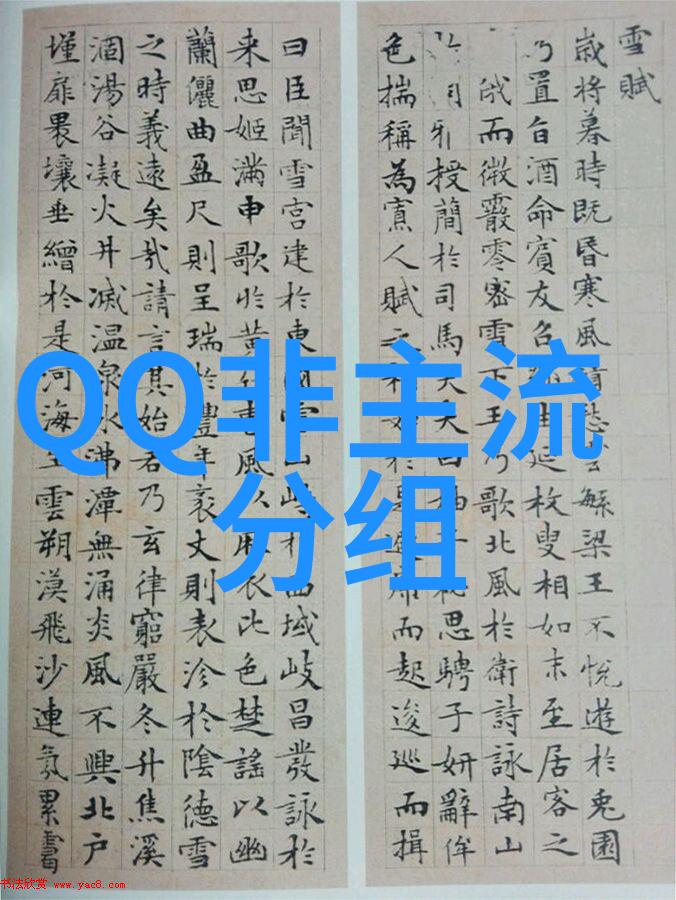 雪賦
歲將暮時既昏寒風愁雲繁梁王不悅遊於兔園
乃置旨酒命賓友召生延枚叟相如末至居客之
俄而微霰零密雪下王乃歌北風於衛詩詠南山
雅授簡於司馬大夫曰抽子思騁子妍辭侔
色揣稱為寡人賦之相如於是避席而起逡巡而揖
曰臣聞雪宮建於東國雪山峙於西域岐昌發詠於
來思姬滿申歌於黃竹曹風以麻衣比色楚謠以幽
蘭儷曲盈尺則呈瑞於豐年袤丈則表沴於陰德雪
之時義遠矣哉請言其始若乃玄律窮嚴冬升焦溪
涸湯谷凝火井滅溫泉冰沸潭無涌炎風不興北戶
墐扉壤垂繒於是河海生雲朔漠飛沙連氛累靄
QQ非主流
分组
书法欣赏 www.yac8.com